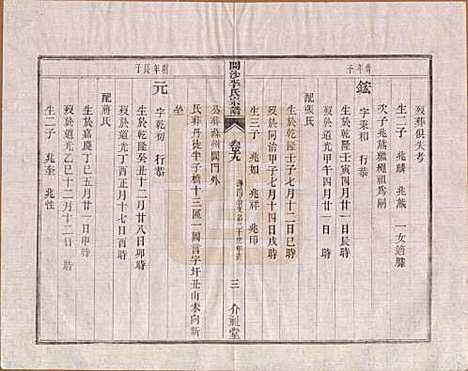 歿葬俱失考
生二子 兆麟 兆熊 一女適滕
次子兆熊繼桓爲嗣
鋐
字秉和 行恭
生於乾隆壬寅四月廿一日辰時
歿於道光甲午四月廿一日 時
配張氏
生於乾隆壬子七月十二日巳時
歿於同治甲子七月十四日戌時
生二子 兆如 兆印
公葬蘇州閶門外
氏葬丹徒半子橋十三區一圖言字圩丑山未向新
坐
開沙李氏宗譜
三 介祉堂
元
字乾初 行恭
生於乾隆癸丑十二月廿八日卯時
歿於道光丁酉正月十七日酉時
配蔣氏
生於嘉慶丁巳五月廿一日申時
歿於道光乙巳十二月十二日 時
生二子 兆奎 兆性